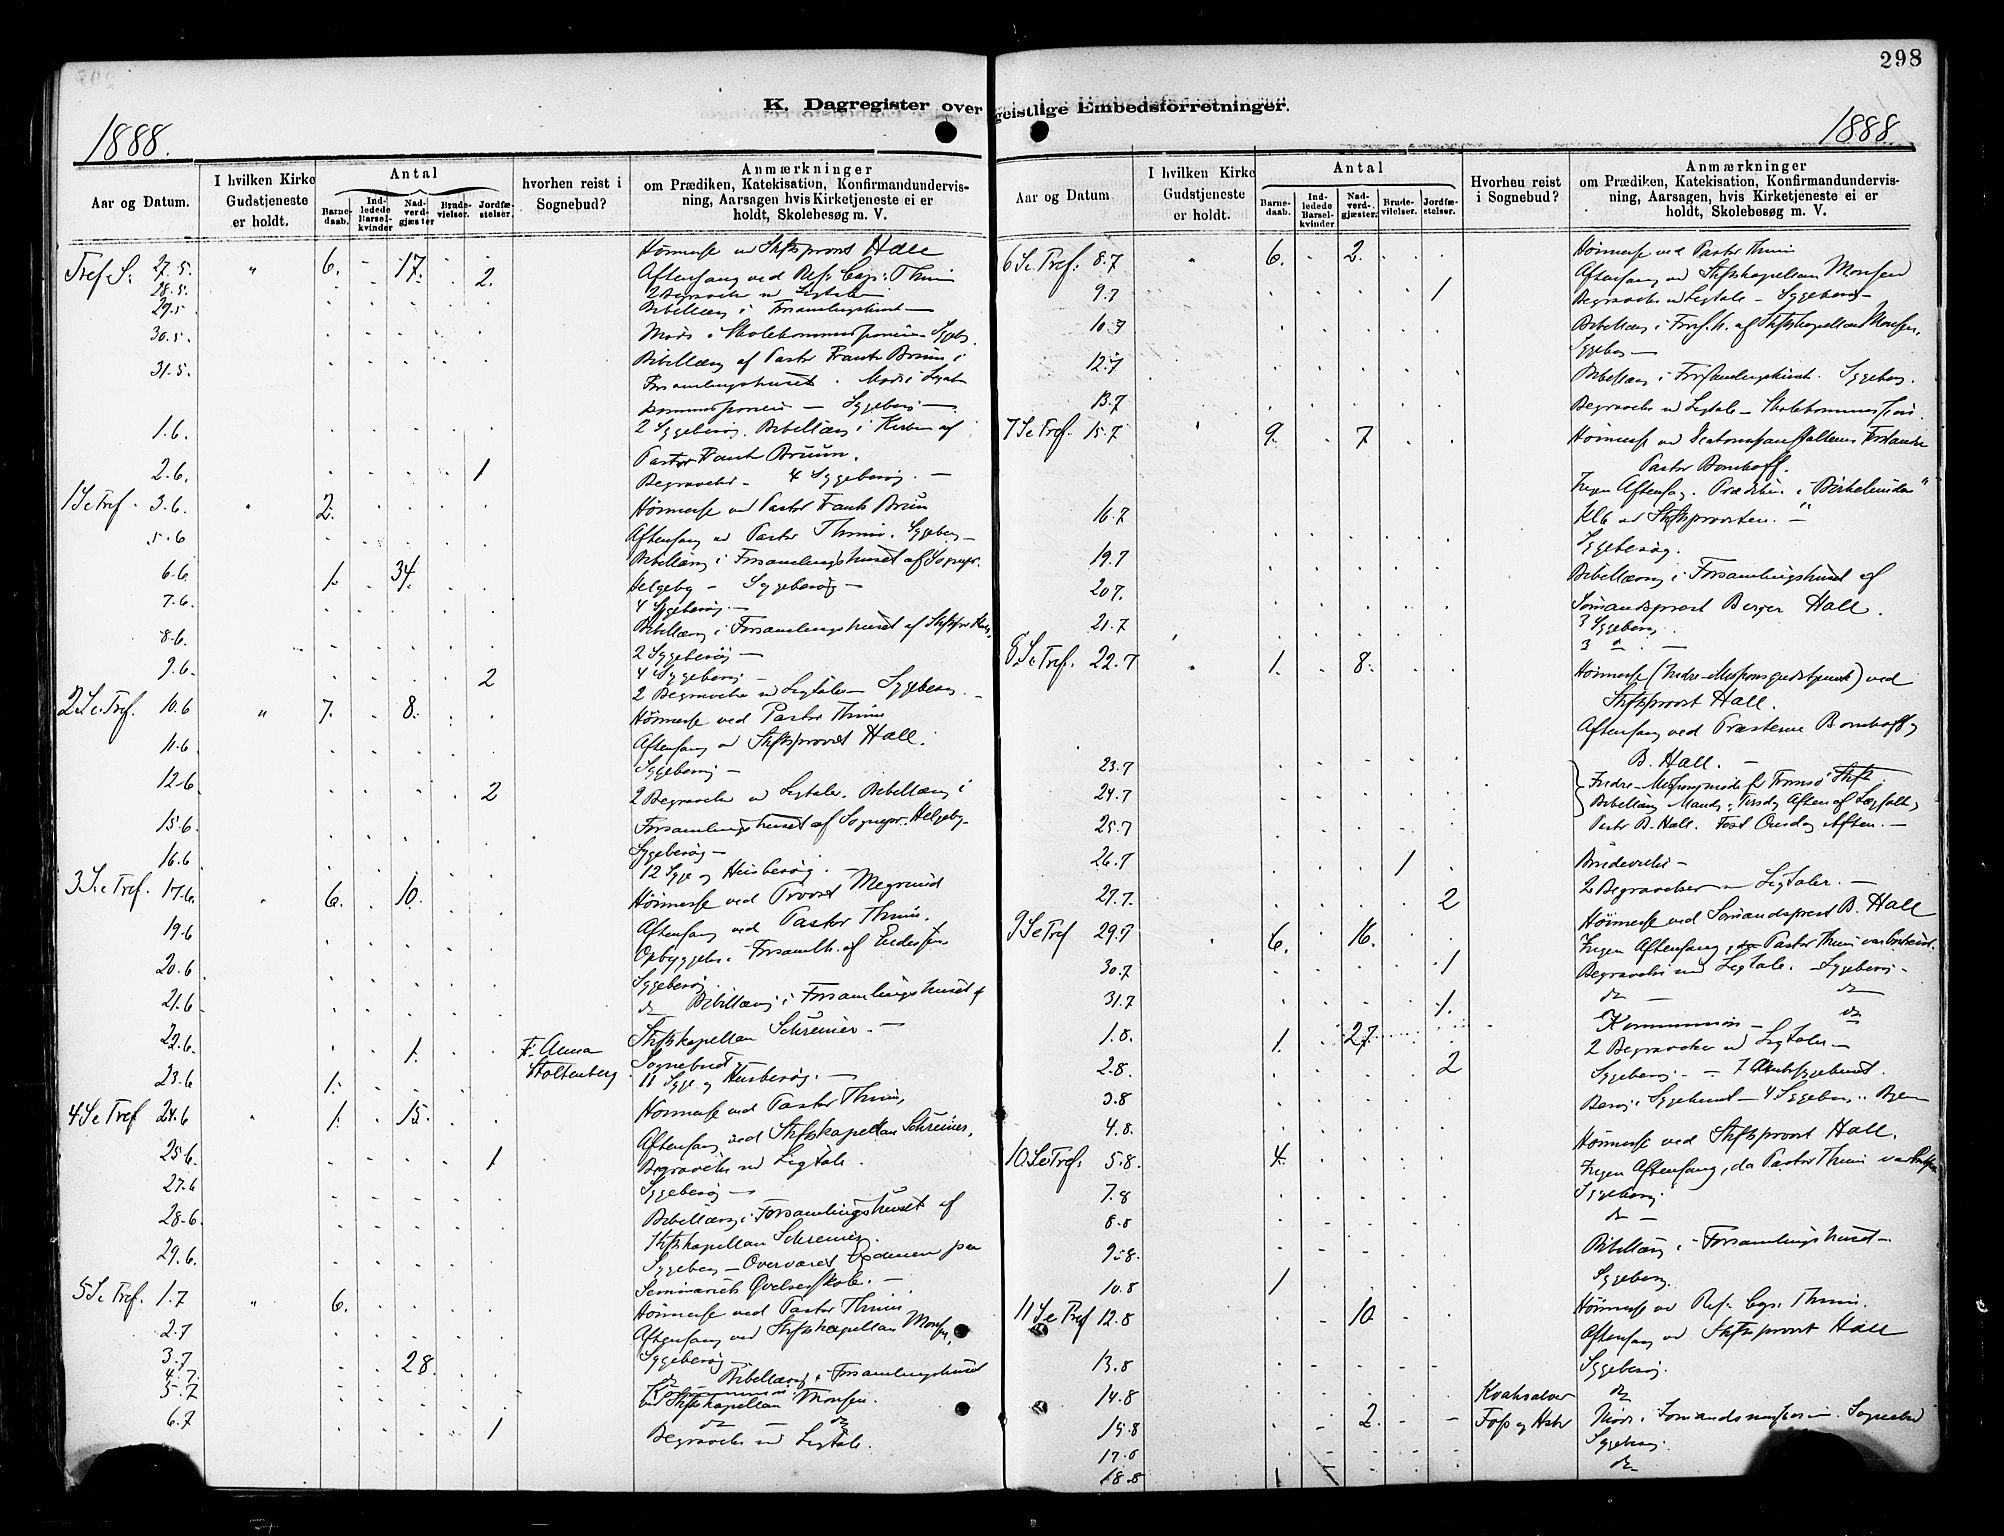 298
K. Dagregister over geistlige Embedsforretninger.
1888.
1888.
Aar og Datum.
I hvilken Kirke Gudstjeneste er holdt.
Antal
Barne-daab.
Ind-ledede Barsel-kvinder
Nad-verd-gjæster
Brude-vielser.
Jordfæ-stelser.
hvorhen reist i Sognebud?
Anmærkninger
om Prædiken, Katekisation, Konfirmandundervis-
ning, Aarsagen hvis Kirketjeneste ei er
holdt, Skolebesøg m. V.
Tref S: 27.5. " 6. - 17. Høimesse ved Stiftsprovst Hall
Aftensang ved Res: Cap: Thuus
28.5. 2. 2 Begravelser m Ligtaler
29.5 Bibellæsn i Forsamlingshuset
30.5. Møde i Skolekommissionen Sygeb.
31.5. Bibellæsn af Pastor Frants Bruun i
Forsamlingshuset. Møde i
kommissionen - Sygebesøg -
1.6. 2 Sygebesøg. Bibellæsn i Kirken af
Pastor Frants Bruun.
2.6. 1 Begravelse - 4 Sygebesøg. -
1 S e Tref. 3.6. " 2. Høimesse ved Pastor Frants Bruun
Aftensang ved Pastor Thuus. Sygebesøg -
5.6 Bibellæsn i Forsamlingshuset af Sognepr.
6.6. 1. 34. Helgeby - Sygebesøg -
7.6. 4 Sygebesøg -
Bibellæsn i Forsamlingshuset af Stiftspr Hall.
8.6. 2 Sygebesøg -
9.6. 4 Sygebesøg -
2 2 Begravelser m Ligtaler - Sygebesøg. -
2 S. e. Tref. 10.6 " 7. 8. Høimesse ved Pastor Thuus
Aftensang ved Stiftsprovst Hall.
11.6 Sygebesøg -
12.6 2 2 Begravelser m Ligtaler. Bibellæsn i
Forsamlingshuset af Sognepr. Helgeby -
15.6. Sygebesøg -
16.6 12 Syge og Husbesøg.
3 S. e Tref. 17.6. " 6. 10. Høimesse ved Provst
Aftensang ved Pastor Thuus.
19.6 Opbyggelse i Forsamlh. af
20.6 Sygebesøg.
21.6 do Bibellæsn i Forsamlingshuset af
Stiftskapellan Schreiner -
22.6. 1. Fr. Anna Stoltenberg Sognebud
23.6 1. 11 Syge og Husbesøg. -
4 S e Tref 24.6 " 1. 15. Høimesse ved Pastor Thuus,
Aftensang ved Stiftskapellan Schreiner,
25.6. 1 Begravelse m Ligtale.
27.6 Sygebesøg -
28.6. Bibellæsn i Forsamlingshuset af
Stiftskapellan Schreiner.
29.6. Sygebesøg - Overværet Examen paa
Seminariets Øvelsesskole. -
5 S e Tref. 1.7 " 6. Høimesse ved Pastor Thuus
Aftensang ved Stiftskapellan Monsen,
2.7 Sygebesøg -
3.7 28. do Bibellæsn i Forsamlingshuset
4.7. ved Stiftskapellan Monsen.
5.7 do - do
6.7 1 Begravelse m Ligtale.
Aar og Datum
I hvilken Kirke Gudstjeneste er holdt.
Antal
Barne-daab.
Ind-ledede Barsel-kvinder
Nad-verd-gjæster.
Brude-vielser.
Jordfæ-stelser.
Hvorheu reist i Sognebud?
Anmærkninger
om Prædiken, Katekisation, Konfirmandundervis-
ning, Aarsagen, hvis Kirketjeneste ei er
holdt, Skolebesøg m. V.
6 S. e Tref. 8.7 " 6. 2. Høimesse ved Pastor Thuus
Aftensang ved Stiftskapellan Monsen
9.7 1 Begravelse m Ligtale - Sygebesøg -
10.7 Bibellæsn i Fors.h. af Stiftskapellan Monsen,
Sygebesøg -
12.7 Bibellæsn i Forsamlingshuset. Sygebesøg.
13.7 Begravelse m Ligtale - Skolekommission.
7 S e Tref. 15.7 " 9. 7 Høimesse ved
Pastor Bomhoff.
Ingen Aftensang. Prædiken i "Birkelunden"
16.7 Kl 6 ved Stiftsprovsten. -
Sygebesøg.
19.7 Bibellæsn i Forsamlingshuset af
20.7. Sømandsprest Berger Hall.
21.7 3 Sygebesøg
3 " -
8. S. e Tref. 22.7 " 1. 8. Høimesse (Indre-Missionsgudstjeneste) ved
Stiftsprovst Hall.
Aftensang ved Præsterne Bomhoff og
B. Hall. -
23.7 Indre-Missionsmøde for Tromsø Stift.
24.7 Bibellæsn Mandag, Tirsdag Aften af
25.7 Pastor B. Hall. Fest Onsdag Aften. -
26.7 1 Brudevielse -
27.7. 2 2 Begravelser m Ligtaler. -
9 S e Tref 29.7 " 6. 16. Høimesse ved Sømandsprest B. Hall
Ingen Aftensang, da Pastor Thuus var bortreist.
30.7 1 Begravelse med Ligtale. Sygebesøg -
31.7 1. do - do
1.8. 1. 27. Kommunion - do
2.8. 2 2 Begravelser m Ligtaler -
Sygebesøg -
3.8 Besøg i Sygehuset - 4 Sygebesøg i Byen
4.8.
10. S e Tref. 5.8. 4. Høimesse ved Stiftsprovst Hall.
Ingen Aftensang, da Pastor Thuus var
7.8 Sygebesøg.
8.8 do -
9.8. Bibellæsn i Forsamlingshuset -
10.8 1 Sygebesøg.
11 S e Tref 12.8 10 Høimesse ved Res: Cap: Thuus.
Aftensang ved Stiftsprovst Hall
13.8 Sygebesøg.
14.8 do
15.8 2. Kvalsalver Foss og Møde i Sømandsmissionen. Sognebud
17.8 Sygebesøg.
18.8 1 do